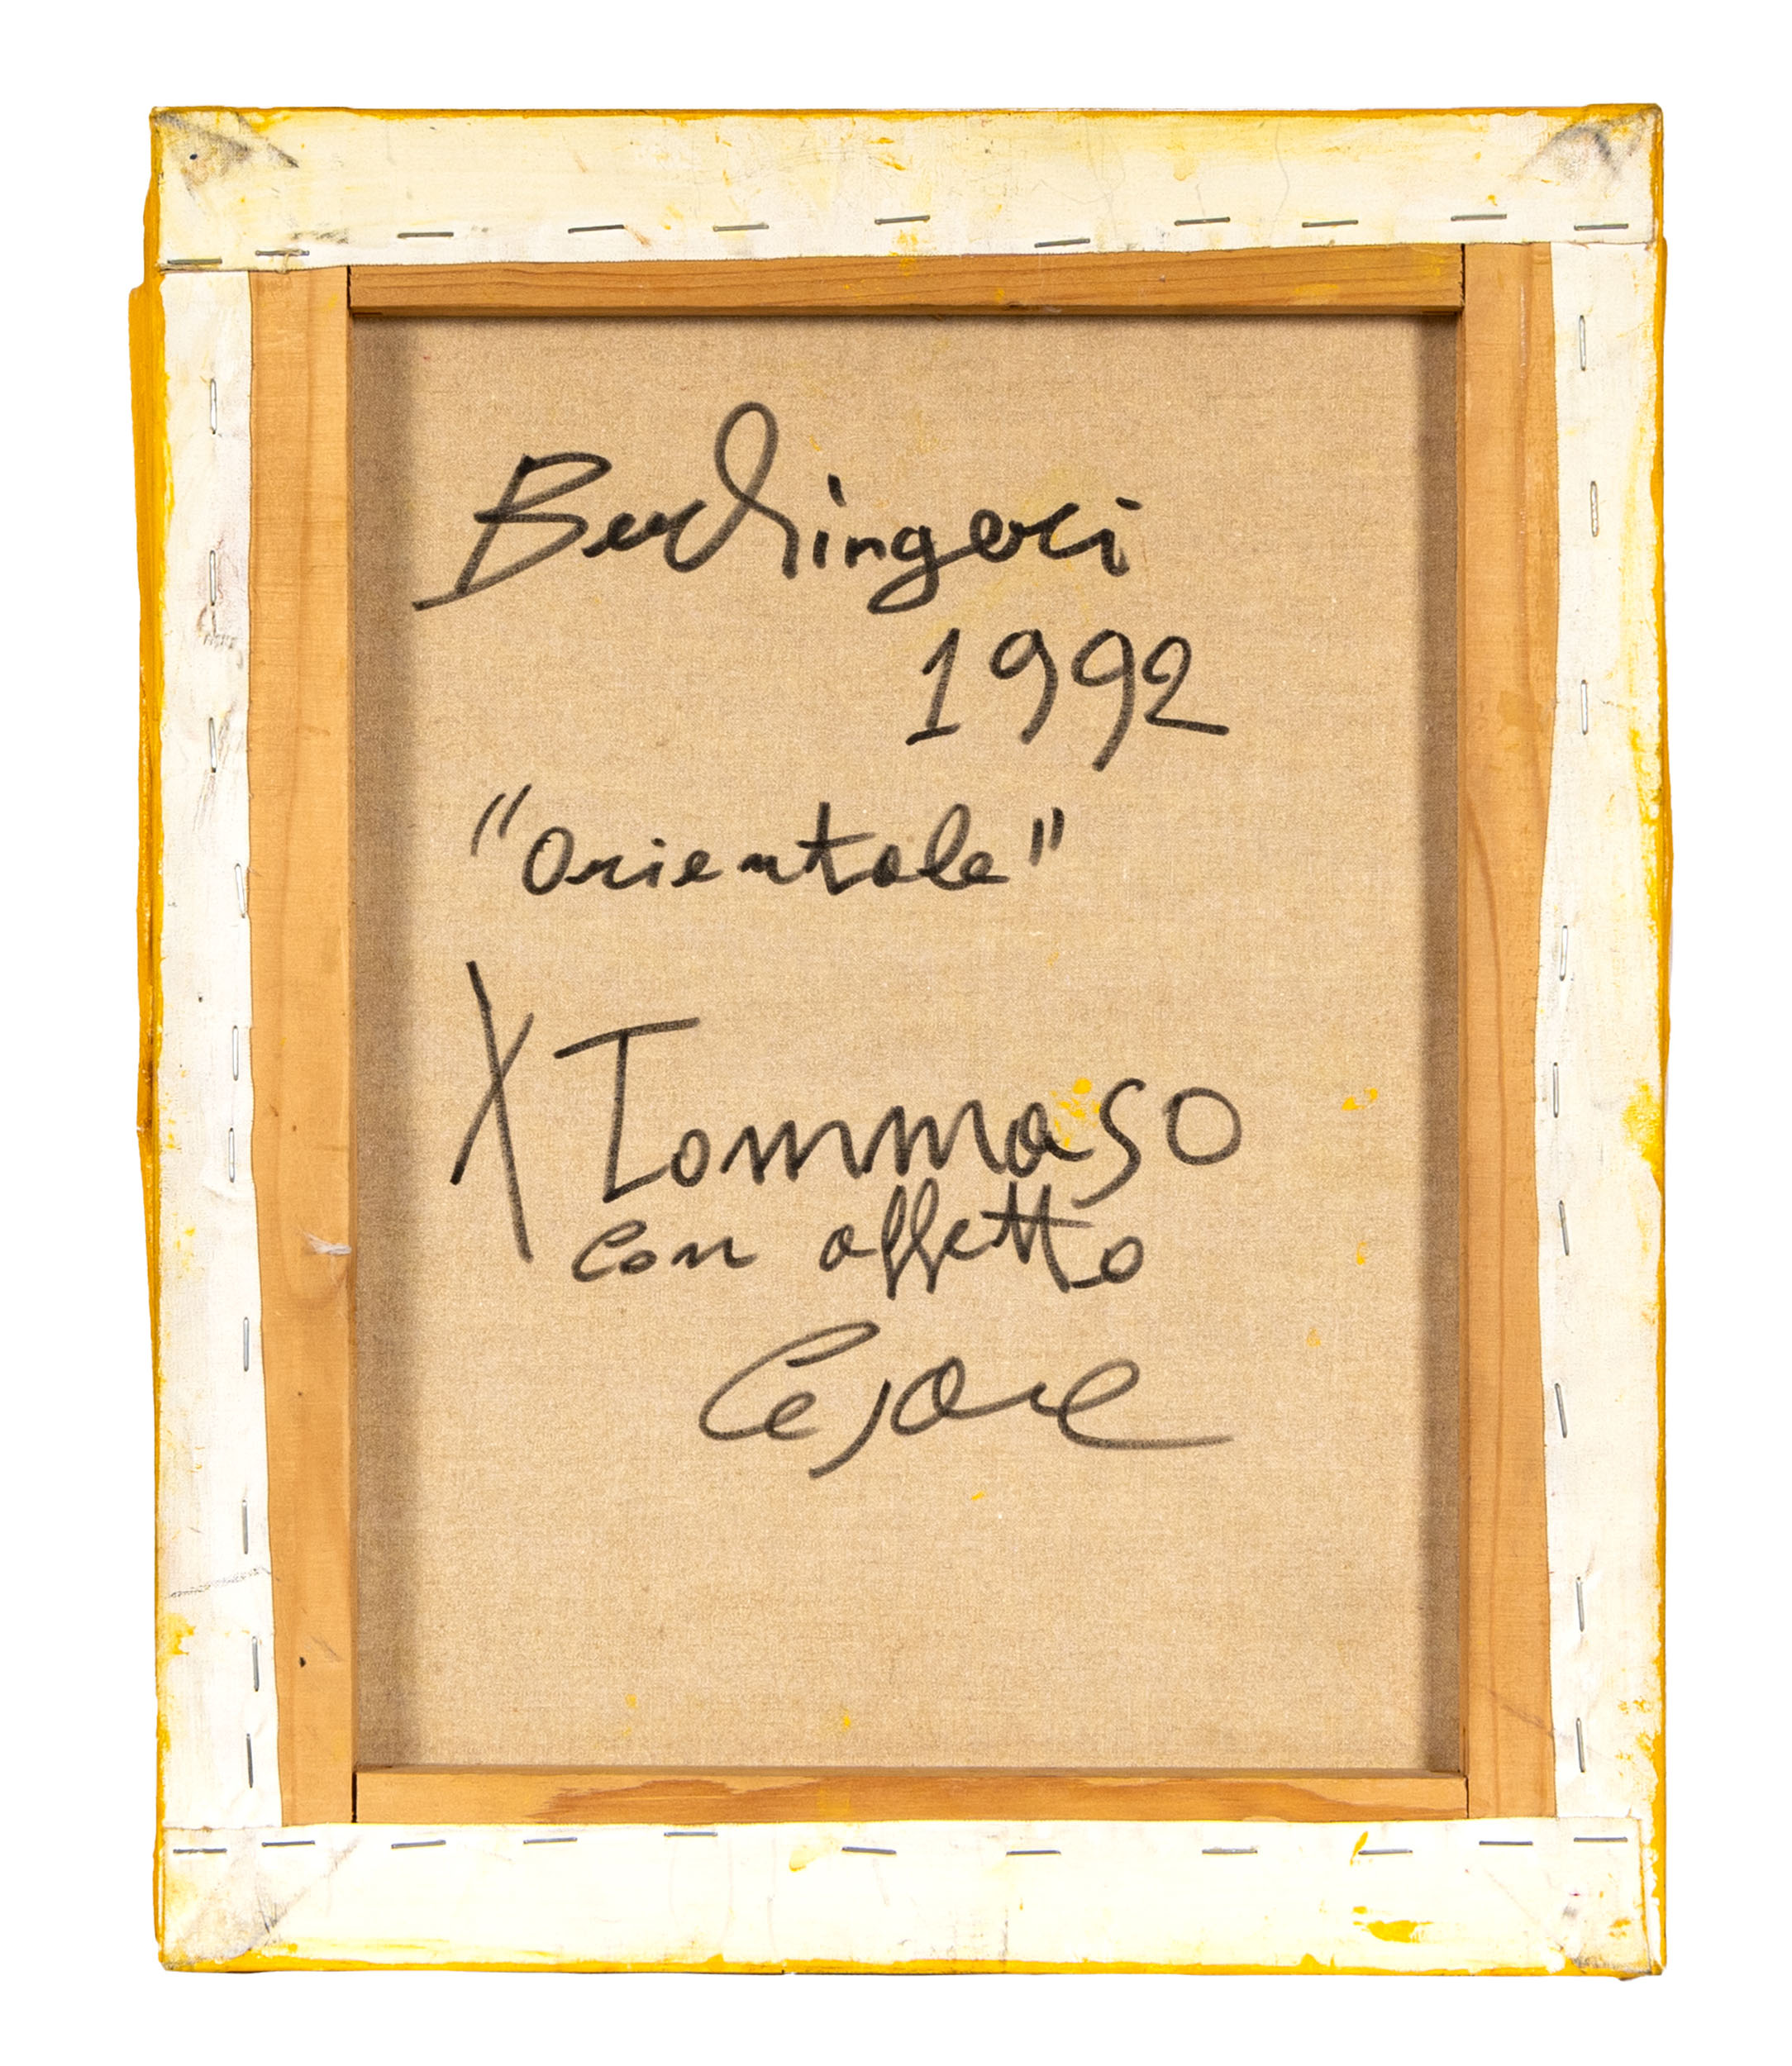 Berlingeri
1992
"Orientale"
X Tommaso
con affetto
Cesare